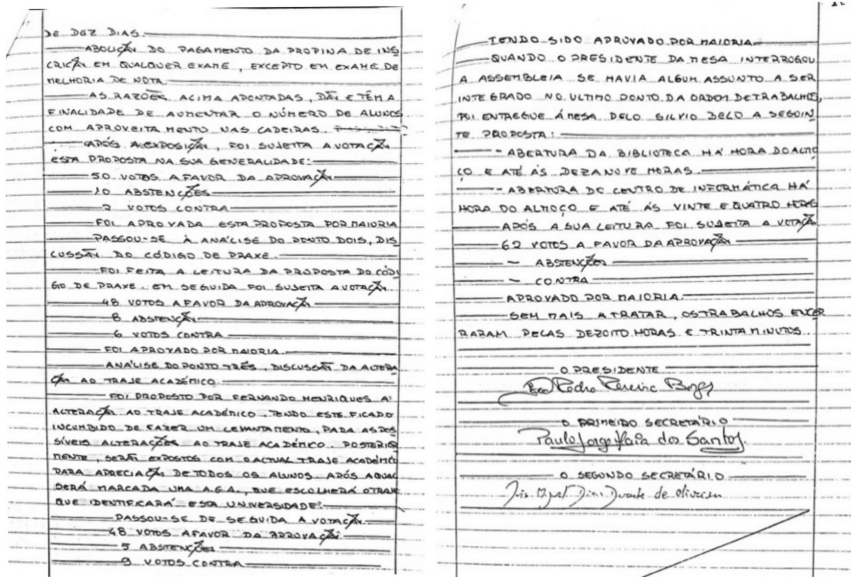 DE DEZ DIAS.
ABOLIÇÃO DO PAGAMENTO DA PROPINA DE INS
CRIÇÃO EM QUALQUER EXAME, EXCEPTO EM EXAME DE
MELHORIA DE NOTA.
AS RAZÕES ACIMA APONTADAS, DÃO E TÊM A
FINALIDADE DE AUMENTAR O NÚMERO DE ALUNOS
COM APROVEITAMENTO NAS CADEIRAS.
APÓS A EXPOSIÇÃO, FOI SUJEITA A VOTAÇÃO
ESTA PROPOSTA NA SUA GENERALIDADE:
50 VOTOS A FAVOR DA APROVAÇÃO
10 ABSTENÇÕES
2 VOTOS CONTRA
FOI APROVADA ESTA PROPOSTA POR MAIORIA
PASSOU-SE À ANÁLISE DO PONTO DOIS, DIS
CUSSÃO DO CÓDIGO DE PRAXE.
FOI FEITA A LEITURA DA PROPOSTA DO CÓDI
GO DE PRAXE. EM SEGUIDA FOI SUJEITA A VOTAÇÃO
48 VOTOS A FAVOR DA APROVAÇÃO
8 ABSTENÇÃO
6 VOTOS CONTRA
FOI APROVADO POR MAIORIA
ANÁLISE DO PONTO TRÊS, DISCUSSÃO DA ALTERA
ÇÃO AO TRAJE ACADÉMICO.
FOI PROPOSTO POR FERNANDO HENRIQUES A
ALTERAÇÃO AO TRAJE ACADÉMICO, TENDO ESTE FICADO
INCUMBIDO DE FAZER UM LEVANTAMENTO, PARA AS POS
SÍVEIS ALTERAÇÕES AO TRAJE ACADÉMICO. POSTERIOR
MENTE, SERÃO EXPOSTOS COM O ACTUAL TRAJE ACADÉMICO
PARA APRECIAÇÃO DE TODOS OS ALUNOS. APÓS A QUAL
SERÁ MARCADA UMA A.G.A., QUE ESCOLHERÁ O TRAJE
QUE IDENTIFICARÁ ESTA UNIVERSIDADE.
PASSOU-SE DE SEGUIDA A VOTAÇÃO.
48 VOTOS A FAVOR DA APROVAÇÃO
5 ABSTENÇÕES
9 VOTOS CONTRA
TENDO SIDO APROVADO POR MAIORIA
QUANDO O PRESIDENTE DA MESA INTERROGOU
A ASSEMBLEIA SE HAVIA ALGUM ASSUNTO A SER
INTEGRADO NO ULTIMO PONTO DA ORDEM DE TRABALHOS,
FOI ENTREGUE Á MESA PELO SILVIO BELO A SEGUIN
TE PROPOSTA:
- ABERTURA DA BIBLIOTECA HÁ HORA DO ALMO
ÇO E ATÉ ÁS DEZANOVE HORAS.
- ABERTURA DO CENTRO DE INFORMÁTICA HÁ
HORA DO ALMOÇO E ATÉ ÁS VINTE E QUATRO HORAS
APÓS A SUA LEITURA FOI SUJEITA A VOTAÇÃO
62 VOTOS A FAVOR DA APROVAÇÃO
- ABSTENÇÕES
- CONTRA
APROVADO POR MAIORIA.
SEM MAIS A TRATAR, OS TRABALHOS ENCER
RARAM PELAS DEZOITO HORAS E TRINTA MINUTOS.
O PRESIDENTE
Pedro Pereira Borges
O PRIMEIRO SECRETÁRIO
Paulo Jorge Maia dos Santos
O SEGUNDO SECRETÁRIO
Luis Miguel Dinis Duarte de Oliveira